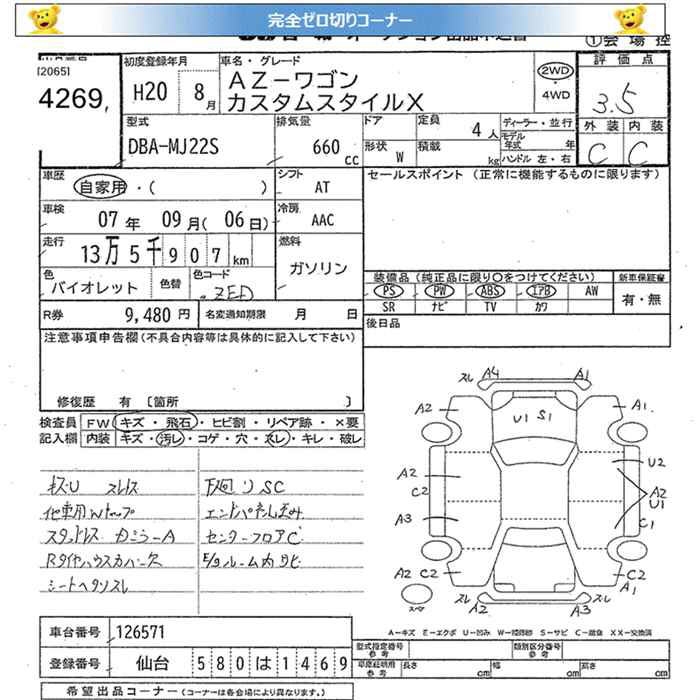 完全ゼロ切りコーナー
①会場控
[2065]
4269,
初度登録年月
H20 8月
車名・グレード
AZ-ワゴン
カスタムスタイルX
2WD
・4WD
評価点
3.5
外装 内装
C C
型式
DBA-MJ22S
排気量
660 cc
ドア
形状 W
定員 4人
積載 kg
ディーラー・並行
モデル年式 年
ハンドル 左・右
車歴
自家用・( )
シフト
AT
セールスポイント (正常に機能するものに限ります)
車検
07年 09月(06日)
冷房
AAC
走行
13万5千907km
燃料
ガソリン
色
バイオレット
色替
色コード
ZED
装備品(純正品に限り○をつけてください)
新車保証書
PS PW ABS エアB AW
SR ナビ TV カワ
有・無
R券 9,480円
名変通知期限 月 日
後日品
注意事項申告欄(不具合内容等は具体的に記入して下さい)
修復歴 有 [箇所 ]
検査員
記入欄
FW キズ・飛石・ヒビ割・リペア跡・×要
内装 キズ・汚レ・コゲ・穴・スレ・キレ・破レ
キズU スレキズ
下廻りSC
他車用Wキャップ
エンドパネル歪み
スタッドレス 4ミラーA
センターフロアC
Rタイヤハウスカバー欠
シートヘタリスレ
スレ A4 A1
A2 U1 S1 A1
U2
A2 C2
A2 U1
A3 C1
A2 C2 C2 A1
スレ A2 A3 スレ
A-キズ E-エクボ U-凹み W-補修跡 S-サビ C-腐食 XX-交換済
車台番号 126571
登録番号 仙台 580は1469
型式指定番号 参考
類別区分番号 参考
長さ cm 幅 cm 高さ cm
希望出品コーナー(コーナーは各会場により異なります。)